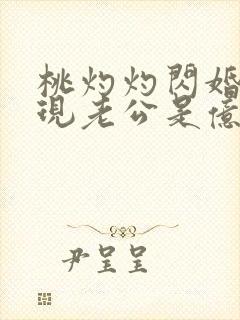 桃灼灼閃婚
現老公是億
尹呈呈